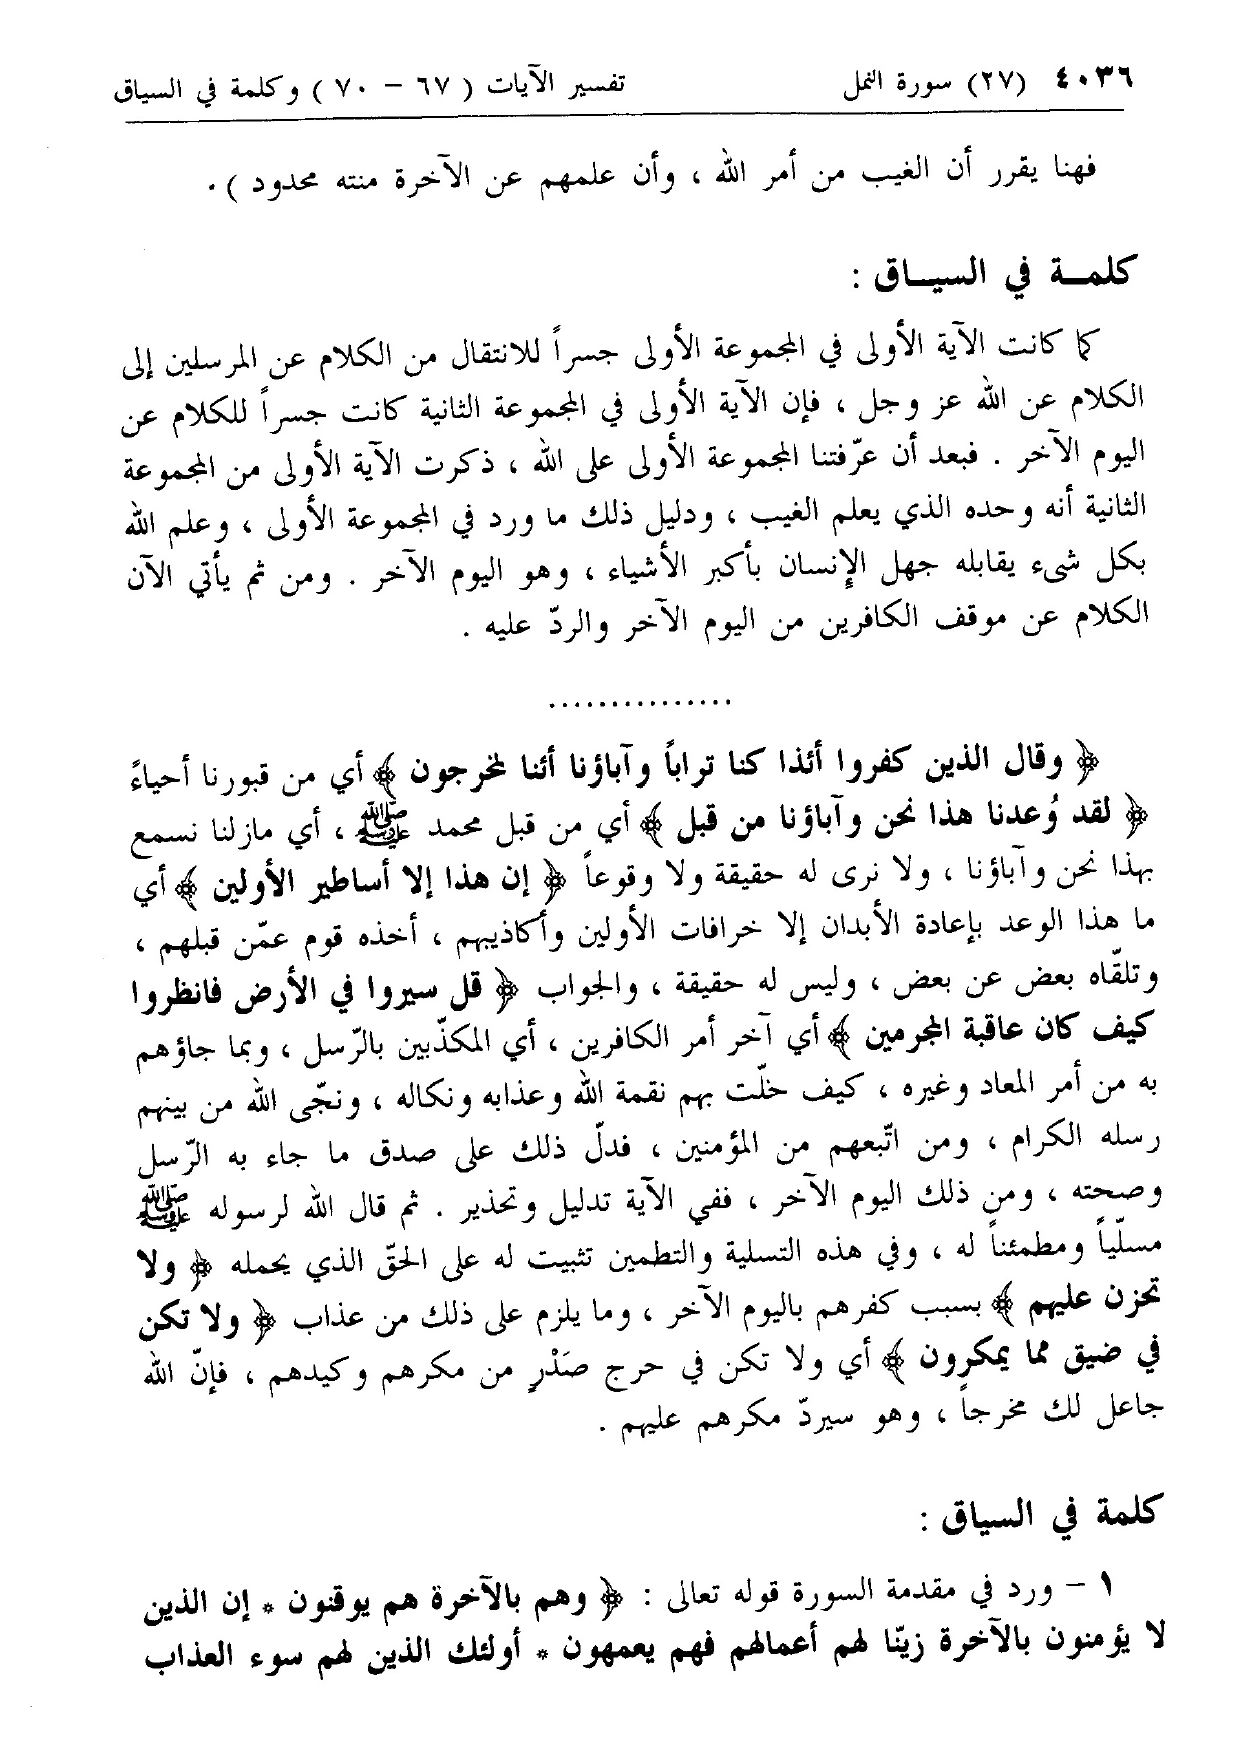 ٤٠٣٦ (٢٧) سورة النمل تفسير الآيات ( ٦٧ – ٧٠ ) وكلمة في السياق
فهنا يقرر أن الغيب من أمر الله ، وأن علمهم عن الآخرة منته محدود ) .
كلمــة في السيــاق :
كما كانت الآية الأولى في المجموعة الأولى جسراً للانتقال من الكلام عن المرسلين إلى
الكلام عن الله عز وجل ، فإن الآية الأولى في المجموعة الثانية كانت جسراً للكلام عن
اليوم الآخر . فبعد أن عرّفتنا المجموعة الأولى على الله ، ذكرت الآية الأولى من المجموعة
الثانية أنه وحده الذي يعلم الغيب ، ودليل ذلك ما ورد في المجموعة الأولى ، وعلم الله
بكل شىء يقابله جهل الإنسان بأكبر الأشياء ، وهو اليوم الآخر . ومن ثم يأتي الآن
الكلام عن موقف الكافرين من اليوم الآخر والردّ عليه .
...............
﴿ وقال الذين كفروا أئذا كنا تراباً وآباؤنا أئنا لمخرجون ﴾ أي من قبورنا أحياءً
﴿ لقد وُعدنا هذا نحن وآباؤنا من قبل ﴾ أي من قبل محمد ﷺ ، أي مازلنا نسمع
بهذا نحن وآباؤنا ، ولا نرى له حقيقة ولا وقوعاً ﴿ إن هذا إلا أساطير الأولين ﴾ أي
ما هذا الوعد بإعادة الأبدان إلا خرافات الأولين وأكاذيبهم ، أخذه قوم عمّن قبلهم ،
وتلقّاه بعض عن بعض ، وليس له حقيقة ، والجواب ﴿ قل سيروا في الأرض فانظروا
كيف كان عاقبة المجرمين ﴾ أي آخر أمر الكافرين ، أي المكذّبين بالرّسل ، وبما جاؤهم
به من أمر المعاد وغيره ، كيف حلّت بهم نقمة الله وعذابه ونكاله ، ونجّى الله من بينهم
رسله الكرام ، ومن اتّبعهم من المؤمنين ، فدلّ ذلك على صدق ما جاء به الرّسل
وصحته ، ومن ذلك اليوم الآخر ، ففي الآية تدليل وتحذير . ثم قال الله لرسوله ﷺ
مسلّياً ومطمئناً له ، وفي هذه التسلية والتطمين تثبيت له على الحقّ الذي يحمله ﴿ ولا
تحزن عليهم ﴾ بسبب كفرهم باليوم الآخر ، وما يلزم على ذلك من عذاب ﴿ ولا تكن
في ضيق مما يمكرون ﴾ أي ولا تكن في حرج صَدْرٍ من مكرهم وكيدهم ، فإنّ الله
جاعل لك مخرجاً ، وهو سيردّ مكرهم عليهم .
كلمة في السياق :
١ – ورد في مقدمة السورة قوله تعالى : ﴿ وهم بالآخرة هم يوقنون * إن الذين
لا يؤمنون بالآخرة زيّنا لهم أعمالهم فهم يعمهون * أولئك الذين لهم سوء العذاب